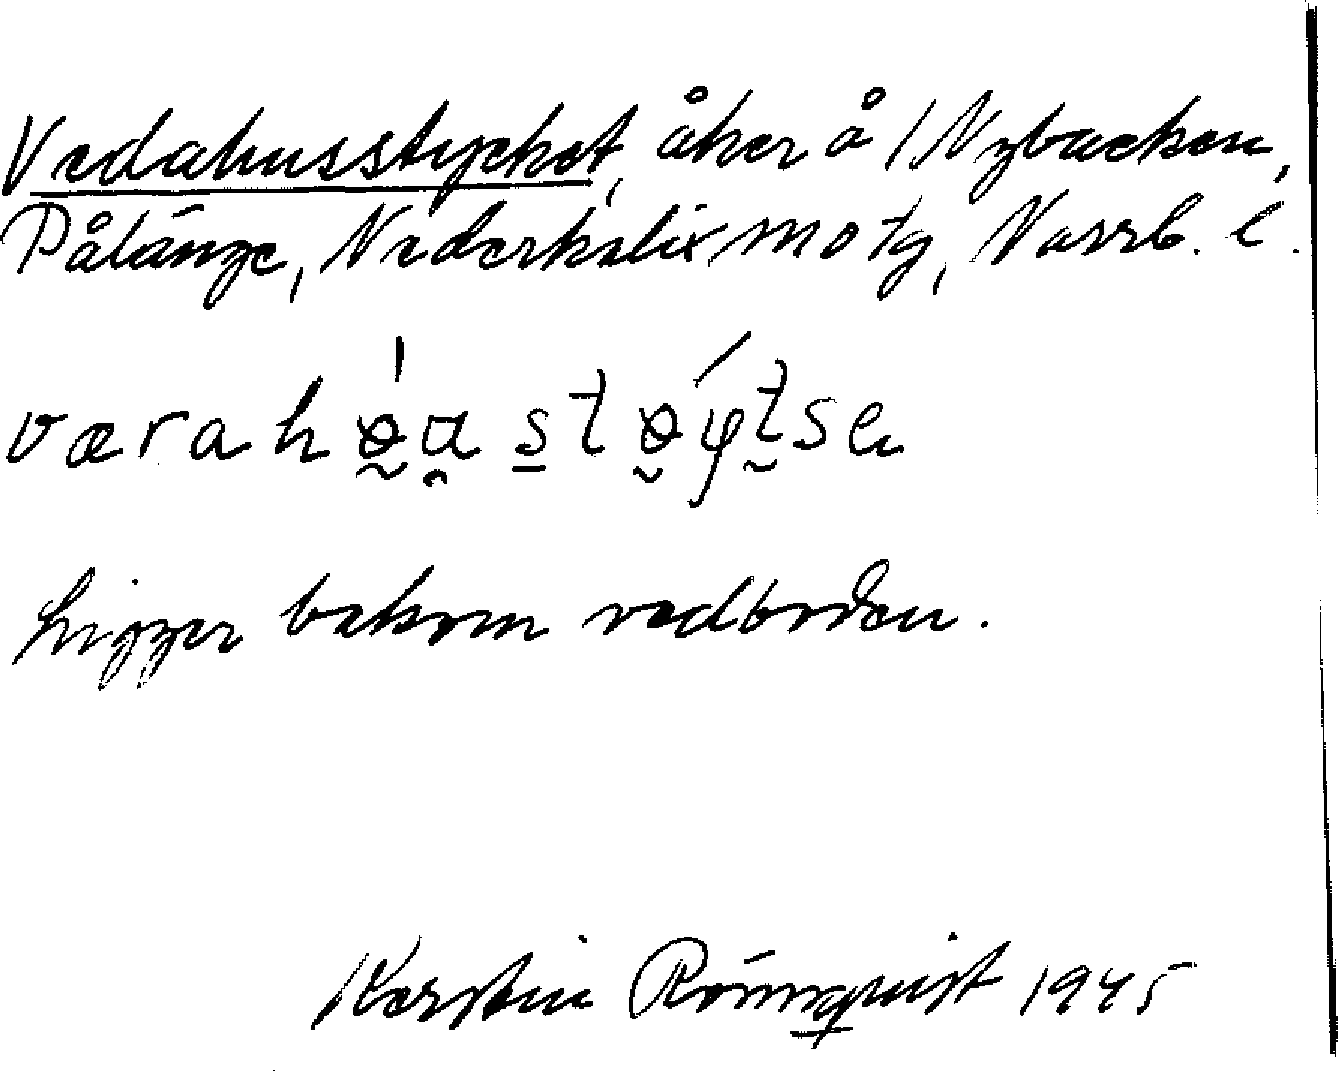 Vedahusstycket, åker å 1 Nybacken,
Pålänge, Nederkalix sn o tg, Norrb. l.
værah
Ligger bakom vedboden.
Kerstin Rönnquist 1945